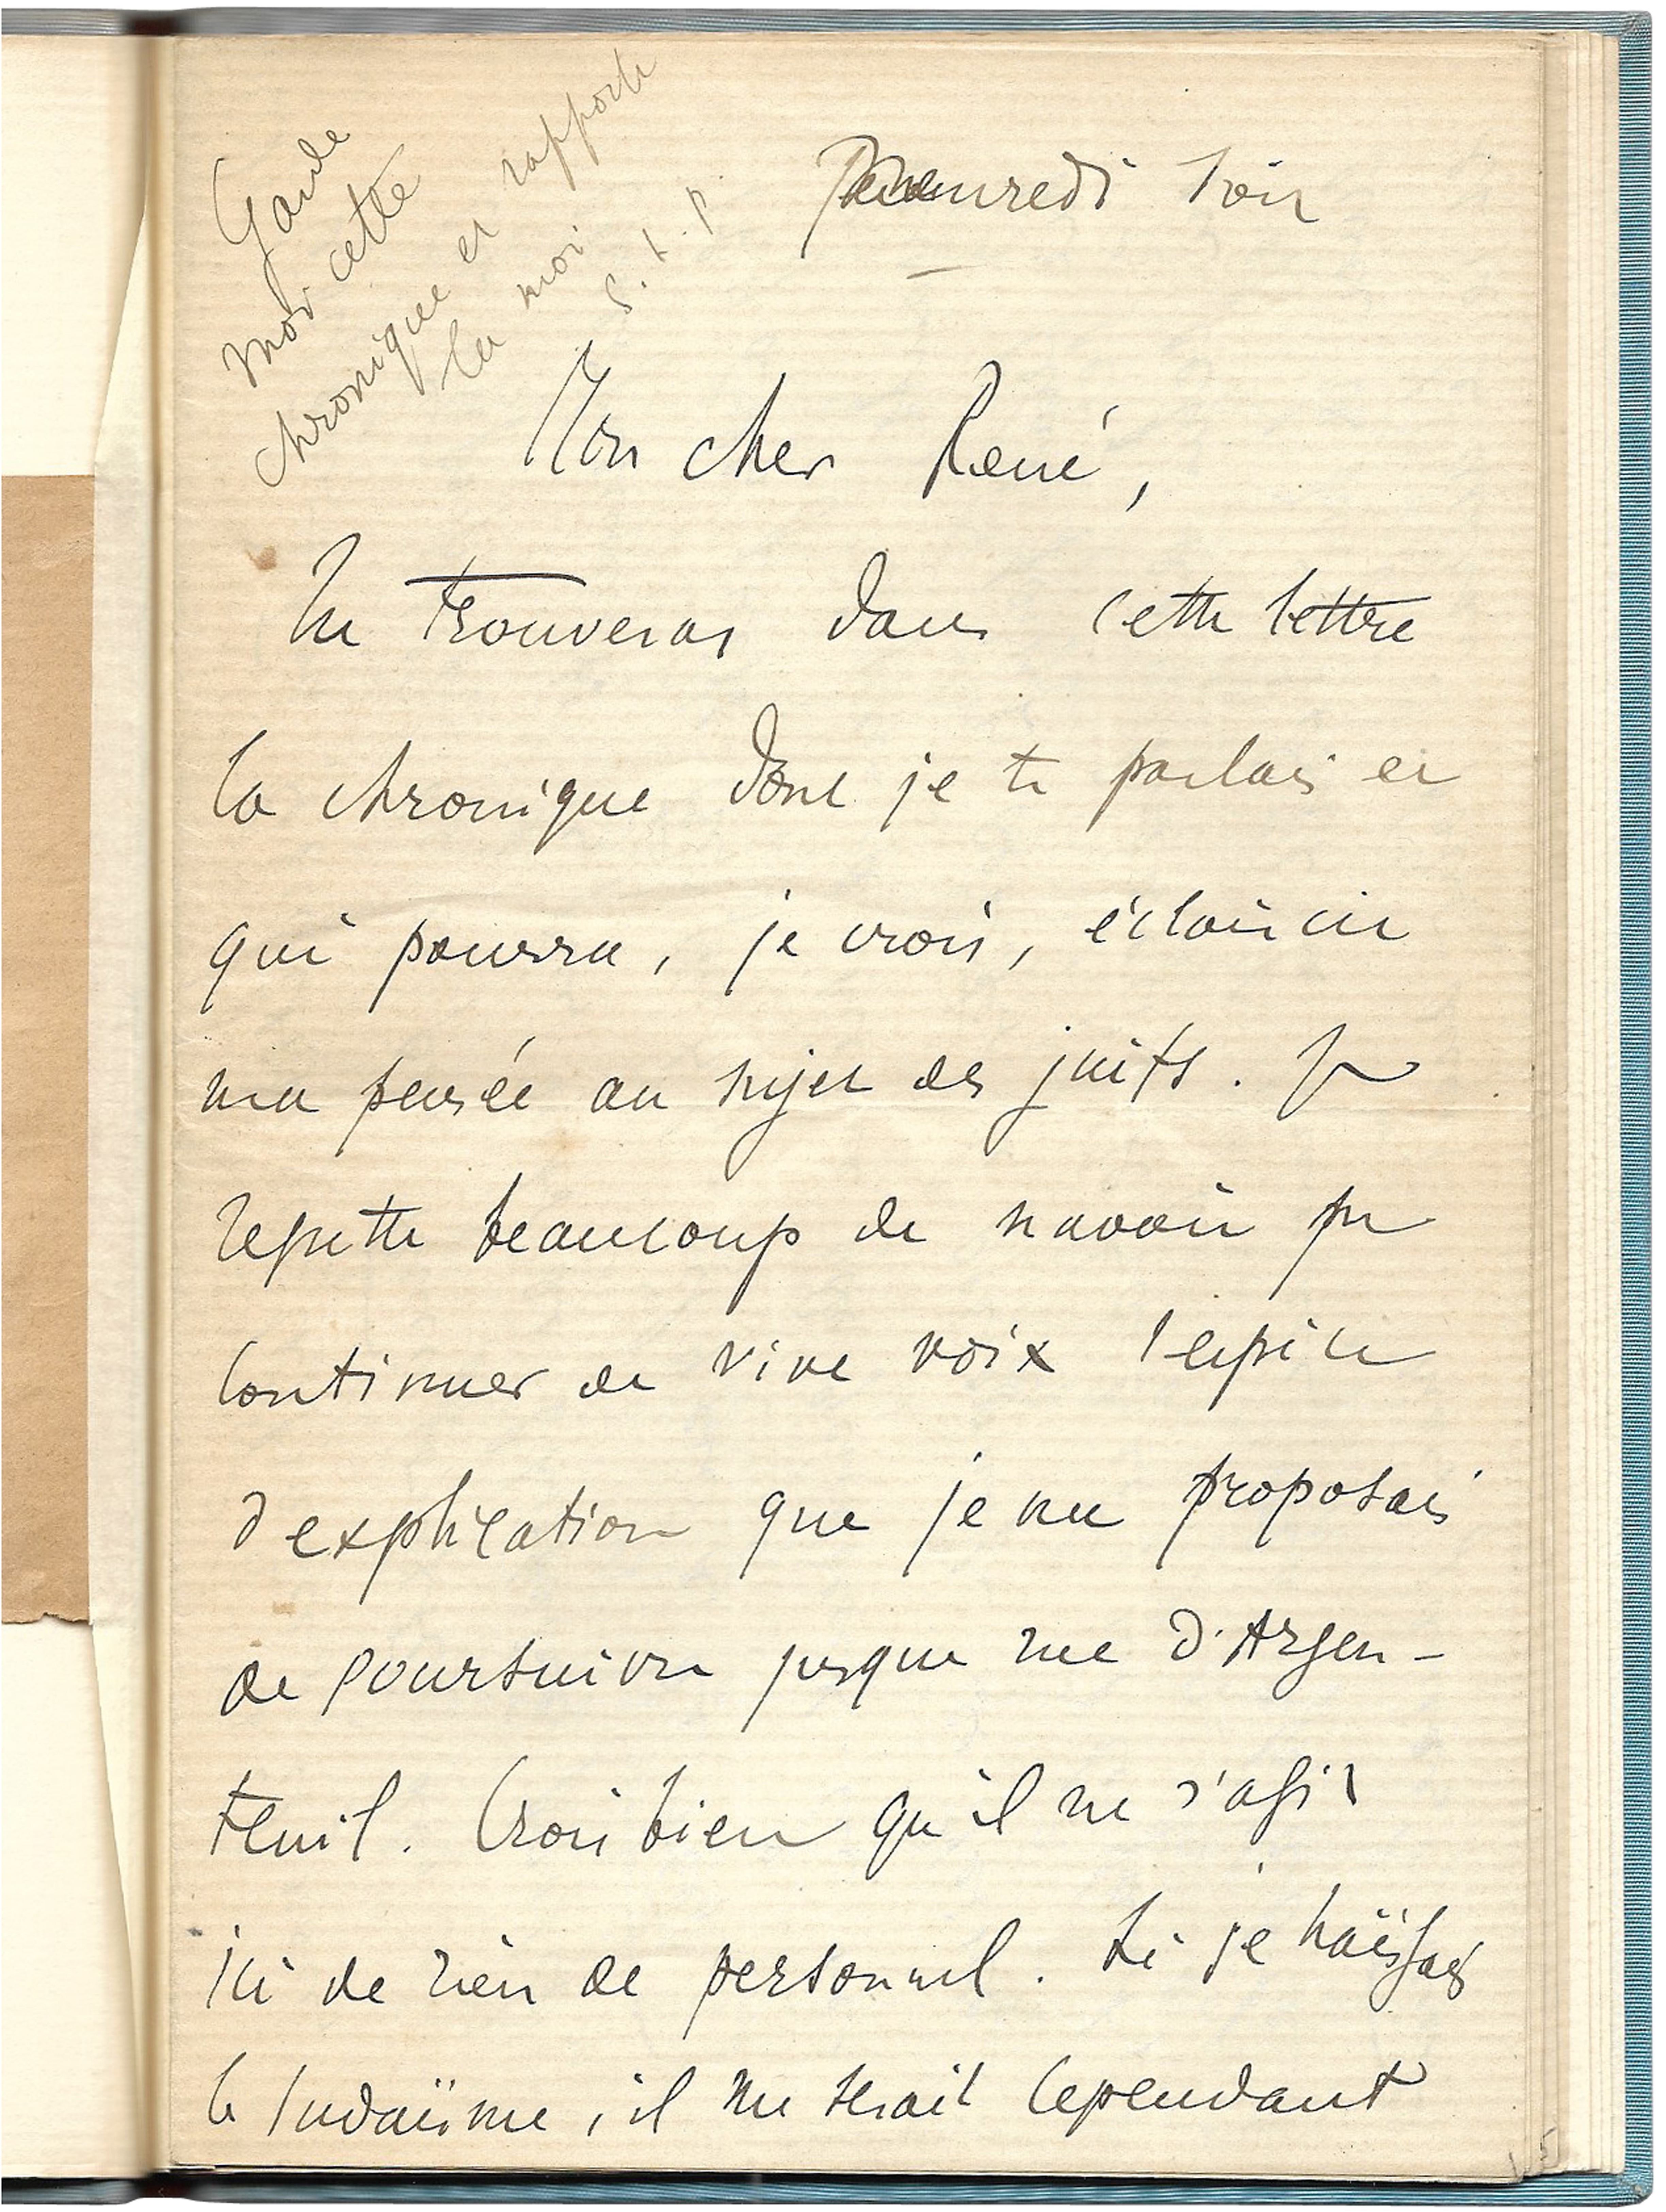 Garde
moi cette
chronique et rapporte
la moi
s. t. p.
soir
Mon cher René,
Tu trouveras dans cette lettre
la chronique dont je te parlais et
qui pourra, je crois, éclaircir
ma pensée au sujet des juifs. Je
regrette beaucoup de n'avoir pu
continuer de vive voix l'espèce
d'explication que je me proposais
de poursuivre jusque rue d'Argen-
teuil. Crois bien qu'il ne s'agit
ici de rien de personnel. Si je haïssais
le Judaïsme, il me serait cependant